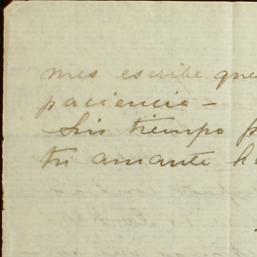 mes escribe que
paciencia –
Sin tiempo p
tu amante h